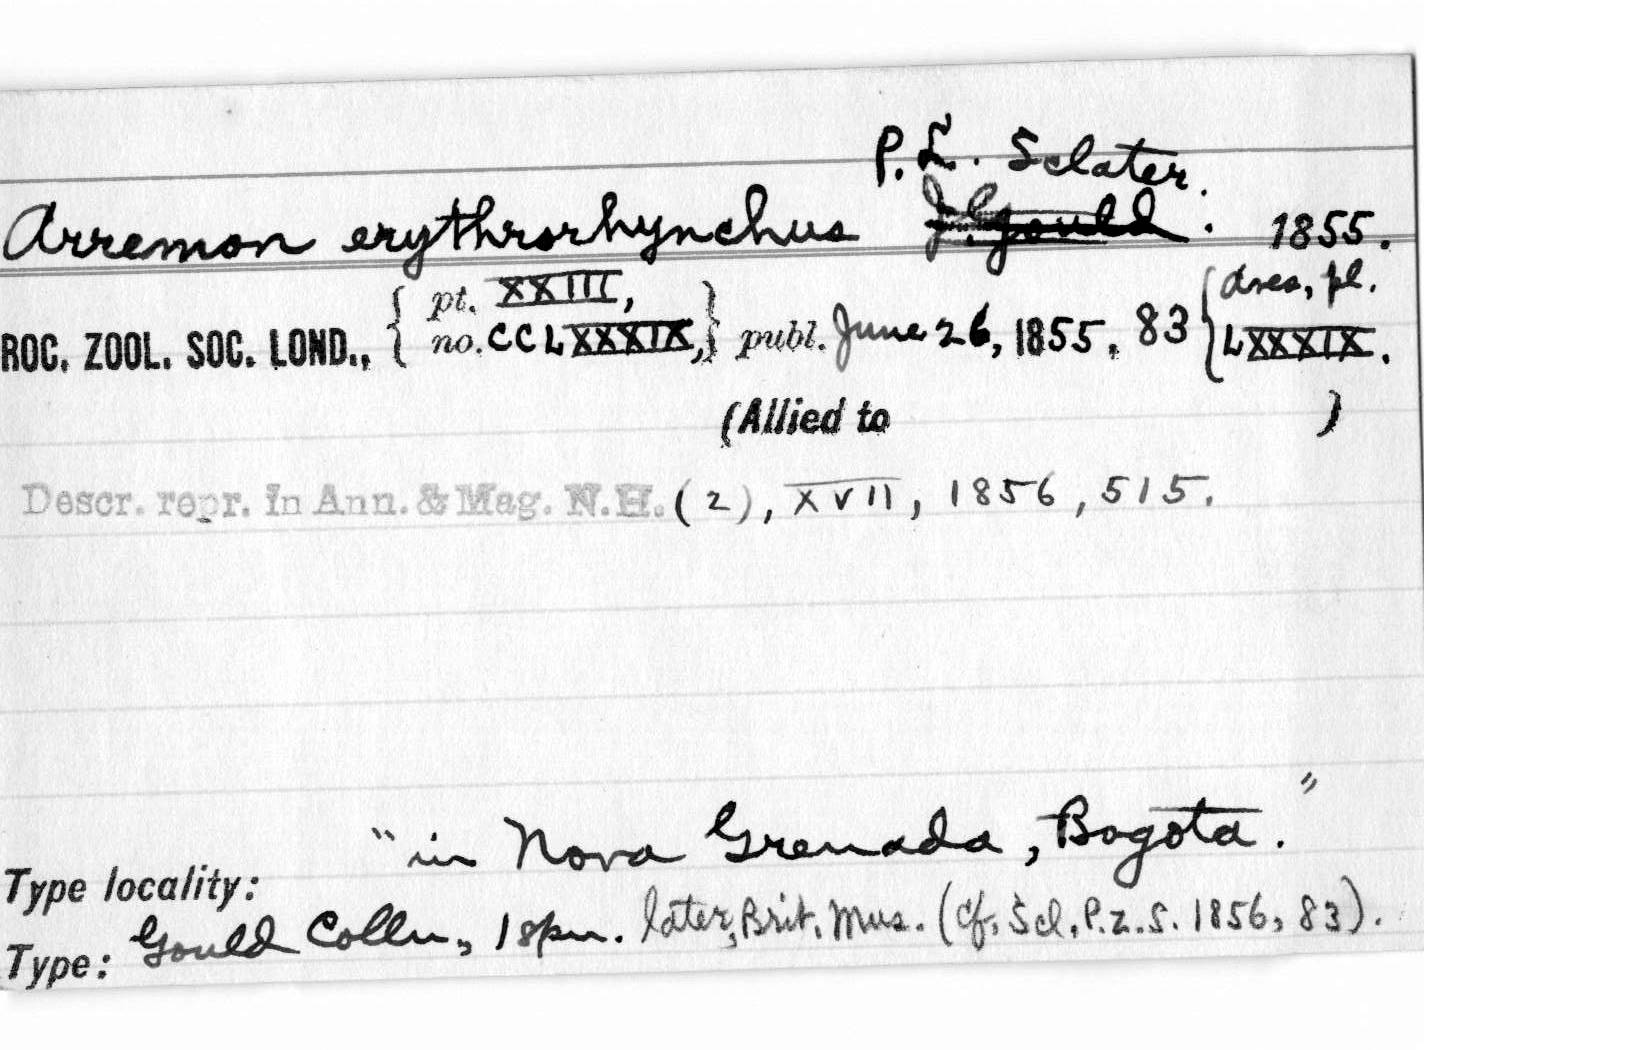 P. L. Sclater.
Arremon erythrorhynchus J. Gould. 1855.
ROC. ZOOL. SOC. LOND., { pt. XXIII, no. CCLXXXIX, } publ. June 26, 1855, 83 { Aves, pl. LXXXIX.
(Allied to )
Descr. repr. in Ann. & Mag. N.H. (2), XVII, 1856, 515.
"in Nova Grenada, Bogota."
Type locality:
Type: Gould Colln., 1 spn. later, Brit. Mus. (Cf. Scl. P.Z.S. 1856, 83).